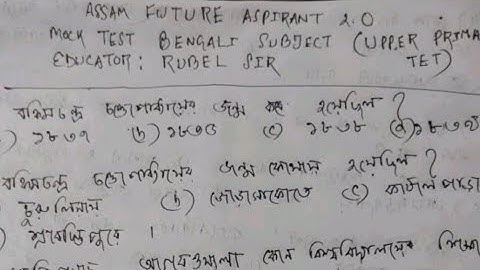 ASSAM FUTURE ASPIRANT 2.0
MOCK TEST BENGALI SUBJECT (UPPER PRIMA
EDUCATOR: RUBEL SIR TET)
বঙ্কিমচন্দ্র চট্টোপাধ্যায়ের জন্ম কবে হয়েছিল?
) ১৮৩৭ (b) ১৮৩৫ (c) ১৮৩৮ (d) ১৮৩৯
বঙ্কিমচন্দ্র চট্টোপাধ্যায়ের জন্ম কোথায় হয়েছিল?
(b) জোড়াসাঁকোতে (c) কাঁঠালপাড়া
কোন বিশ্ববিদ্যালয়ের